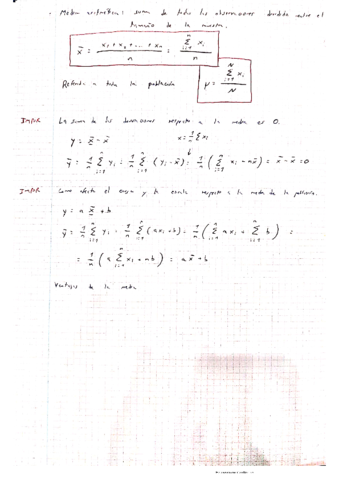 - Media aritmética: suma de todas las observaciones dividida entre el
tamaño de la muestra.
x̄ = x₁ + x₂ + ... + xₙ / n = Σᵢ₌₁ⁿ xᵢ / n
Referida a toda la población
μ = Σᵢ₌₁ᴺ xᵢ / N
IMPOR. La suma de las desviaciones respecto a la media es 0.
y = x̄ - x̄
x = 1/n Σ xᵢ
ȳ = 1/n Σᵢ₌₁ⁿ yᵢ = 1/n Σᵢ₌₁ⁿ (yᵢ - x̄) = 1/n (Σᵢ₌₁ⁿ xᵢ - nx̄) = x̄ - x̄ = 0
IMPOR. Como afecta el origen y la escala respecto a la media de la población.
y = a x̄ + b
ȳ = 1/n Σᵢ₌₁ⁿ yᵢ = 1/n Σᵢ₌₁ⁿ (axᵢ + b) = 1/n (Σᵢ₌₁ⁿ axᵢ + Σᵢ₌₁ⁿ b) =
= 1/n (a Σᵢ₌₁ⁿ xᵢ + nb) = a x̄ + b
Ventajas de la media